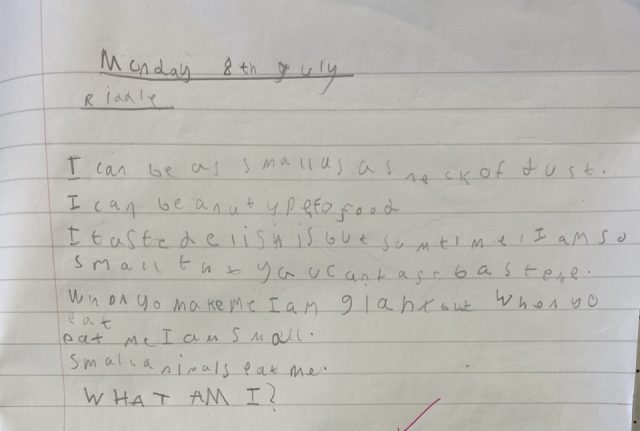 Monday 8th July
Riddle
I can be as small us as neck of dust.
I can be anu type fo food
I taste delishis but sumtime I am so
small that you cant
Whon yo make me I am giant but when yo
eat
eat me I am small.
Small animals eat me.
WHAT AM I?